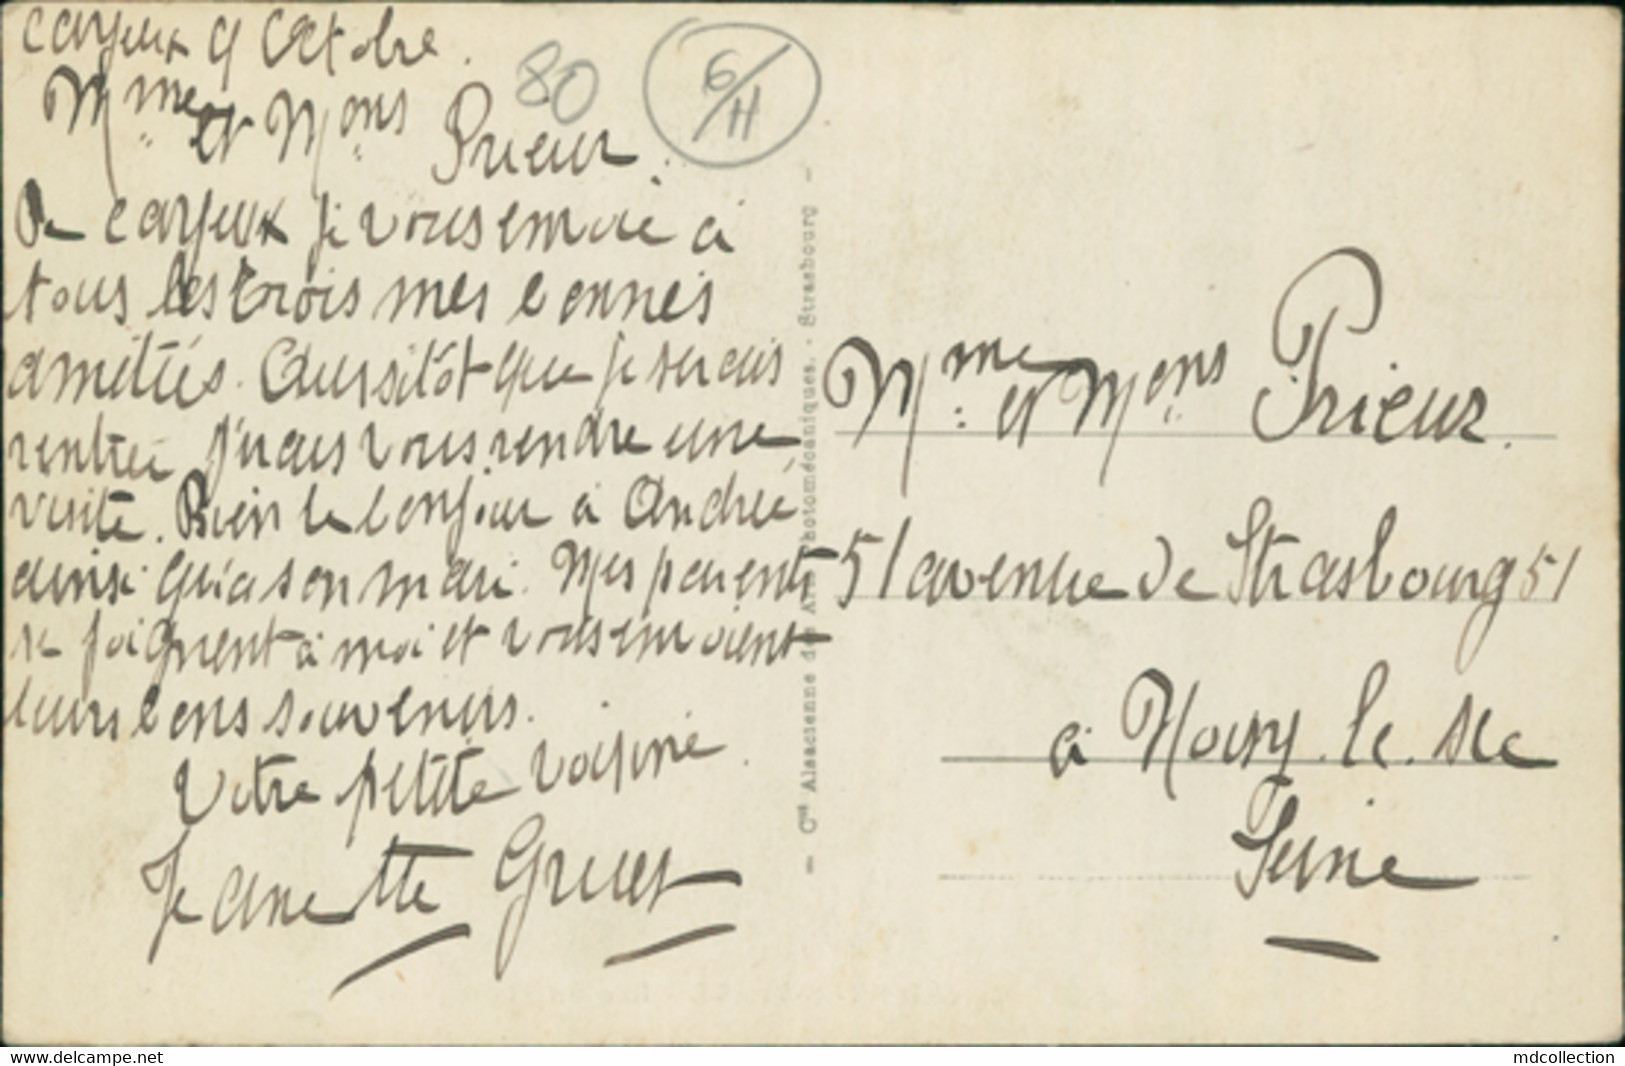 Cayeux 9 Octobre.
80
6/H
Mme et Mons Prieur.
De Cayeux je vous envoie à
tous les trois mes bonnes
amitiés. Aussitôt que je serais
rentrée j'irais vous rendre une
visite. Bien le bonjour à Andrée
ainsi qu'a son mari. Mes parents
se joignent à moi et vous envoient
leurs bons souvenirs.
Votre petite voisine.
Jeanette Gruet
- Cie Alsacienne des Arts Photomécaniques. - Strasbourg -
Mme et Mons Prieur.
51 avenue de Strasbourg 51
à Noisy. le. sec
Seine
www.delcampe.net
mdcollection